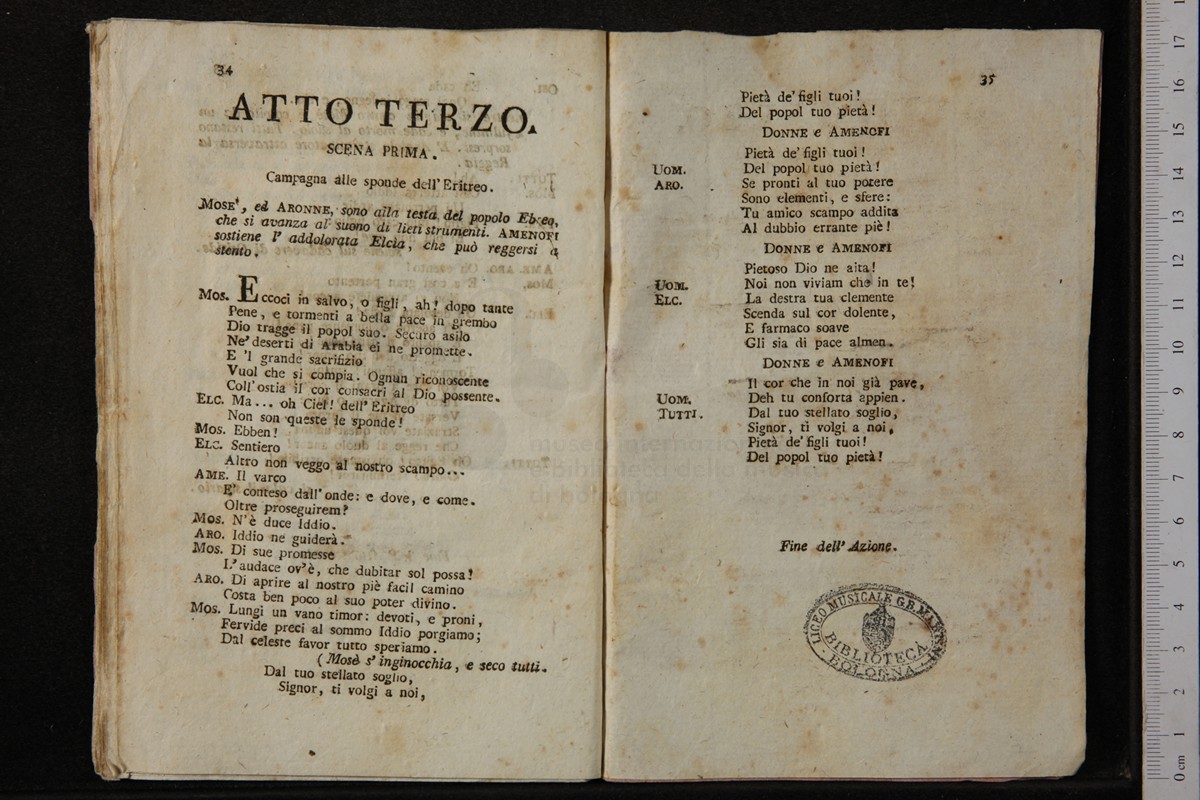 34
ATTO TERZO.
SCENA PRIMA.
Campagna alle sponde dell' Eritreo.
MOSE', ed ARONNE, sono alla testa del popolo Ebreo,
che si avanza al suono di lieti strumenti. AMENOFI
sostiene l' addolorata Elcìa, che può reggersi a
stento.
Mos. Eccoci in salvo, o figli, ah! dopo tante
Pene, e tormenti a bella pace in grembo
Dio tragge il popol suo. Securo asilo
Ne' deserti di Arabia ei ne promette.
E 'l grande sacrifizio
Vuol che si compia. Ognun riconoscente
Coll' ostia il cor consacri al Dio possente.
ELC. Ma... oh Ciel! dell' Eritreo
Non son queste le sponde!
Mos. Ebben!
ELC. Sentiero
Altro non veggo al nostro scampo...
AME. Il varco
E' conteso dall' onde: e dove, e come.
Oltre proseguirem?
Mos. N'è duce Iddio.
ARO. Iddio ne guiderà.
Mos. Di sue promesse
L' audace ov'è, che dubitar sol possa!
ARO. Di aprire al nostro piè facil camino
Costa ben poco al suo poter divino.
Mos. Lungi un vano timor: devoti, e proni,
Fervide preci al sommo Iddio porgiamo;
Dal celeste favor tutto speriamo.
(Mosè s' inginocchia, e seco tutti.
Dal tuo stellato soglio,
Signor, ti volgi a noi,
35
Pietà de' figli tuoi!
Del popol tuo pietà!
DONNE e AMENOFI
Pietà de' figli tuoi!
UOM. Del popol tuo pietà!
ARO. Se pronti al tuo potere
Sono elementi, e sfere:
Tu amico scampo addita
Al dubbio errante piè!
DONNE e AMENOFI
Pietoso Dio ne aita!
UOM. Noi non viviam che in te!
ELC. La destra tua clemente
Scenda sul cor dolente,
E farmaco soave
Gli sia di pace almen.
DONNE e AMENOFI
Il cor che in noi già pave,
UOM. Deh tu conforta appien.
TUTTI. Dal tuo stellato soglio,
Signor, ti volgi a noi,
Pietà de' figli tuoi!
Del popol tuo pietà!
Fine dell' Azione.
LICEO MUSICALE G.B. MARTINI
BIBLIOTECA
BOLOGNA
museo internazionale
e biblioteca della musica
di bologna
17
16
15
14
13
12
11
10
9
8
7
6
5
4
3
2
1
0 cm